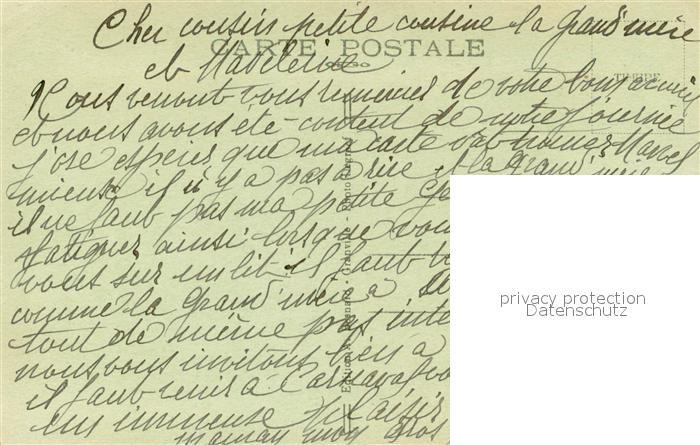 Cher cousin petite cousine la grand mère
CARTE POSTALE
et Madeleine
TIMBRE
Nous venont vous remercier de votre bon accueil
et nous avons été content de notre journée
j'ose espérer que ma carte va trouver Marcel
mieux il n'y a pas a rire et la grand mère
il ne faut pas ma petite
fatiguer ainsi lorsque vou
vous sur un lit il faut
comme la grand mère a
tout de même pas inte
nous vous invitons bien a
il faut venir a Carnaval
un immense plaisir
maman mon gros
privacy protection
Datenschutz